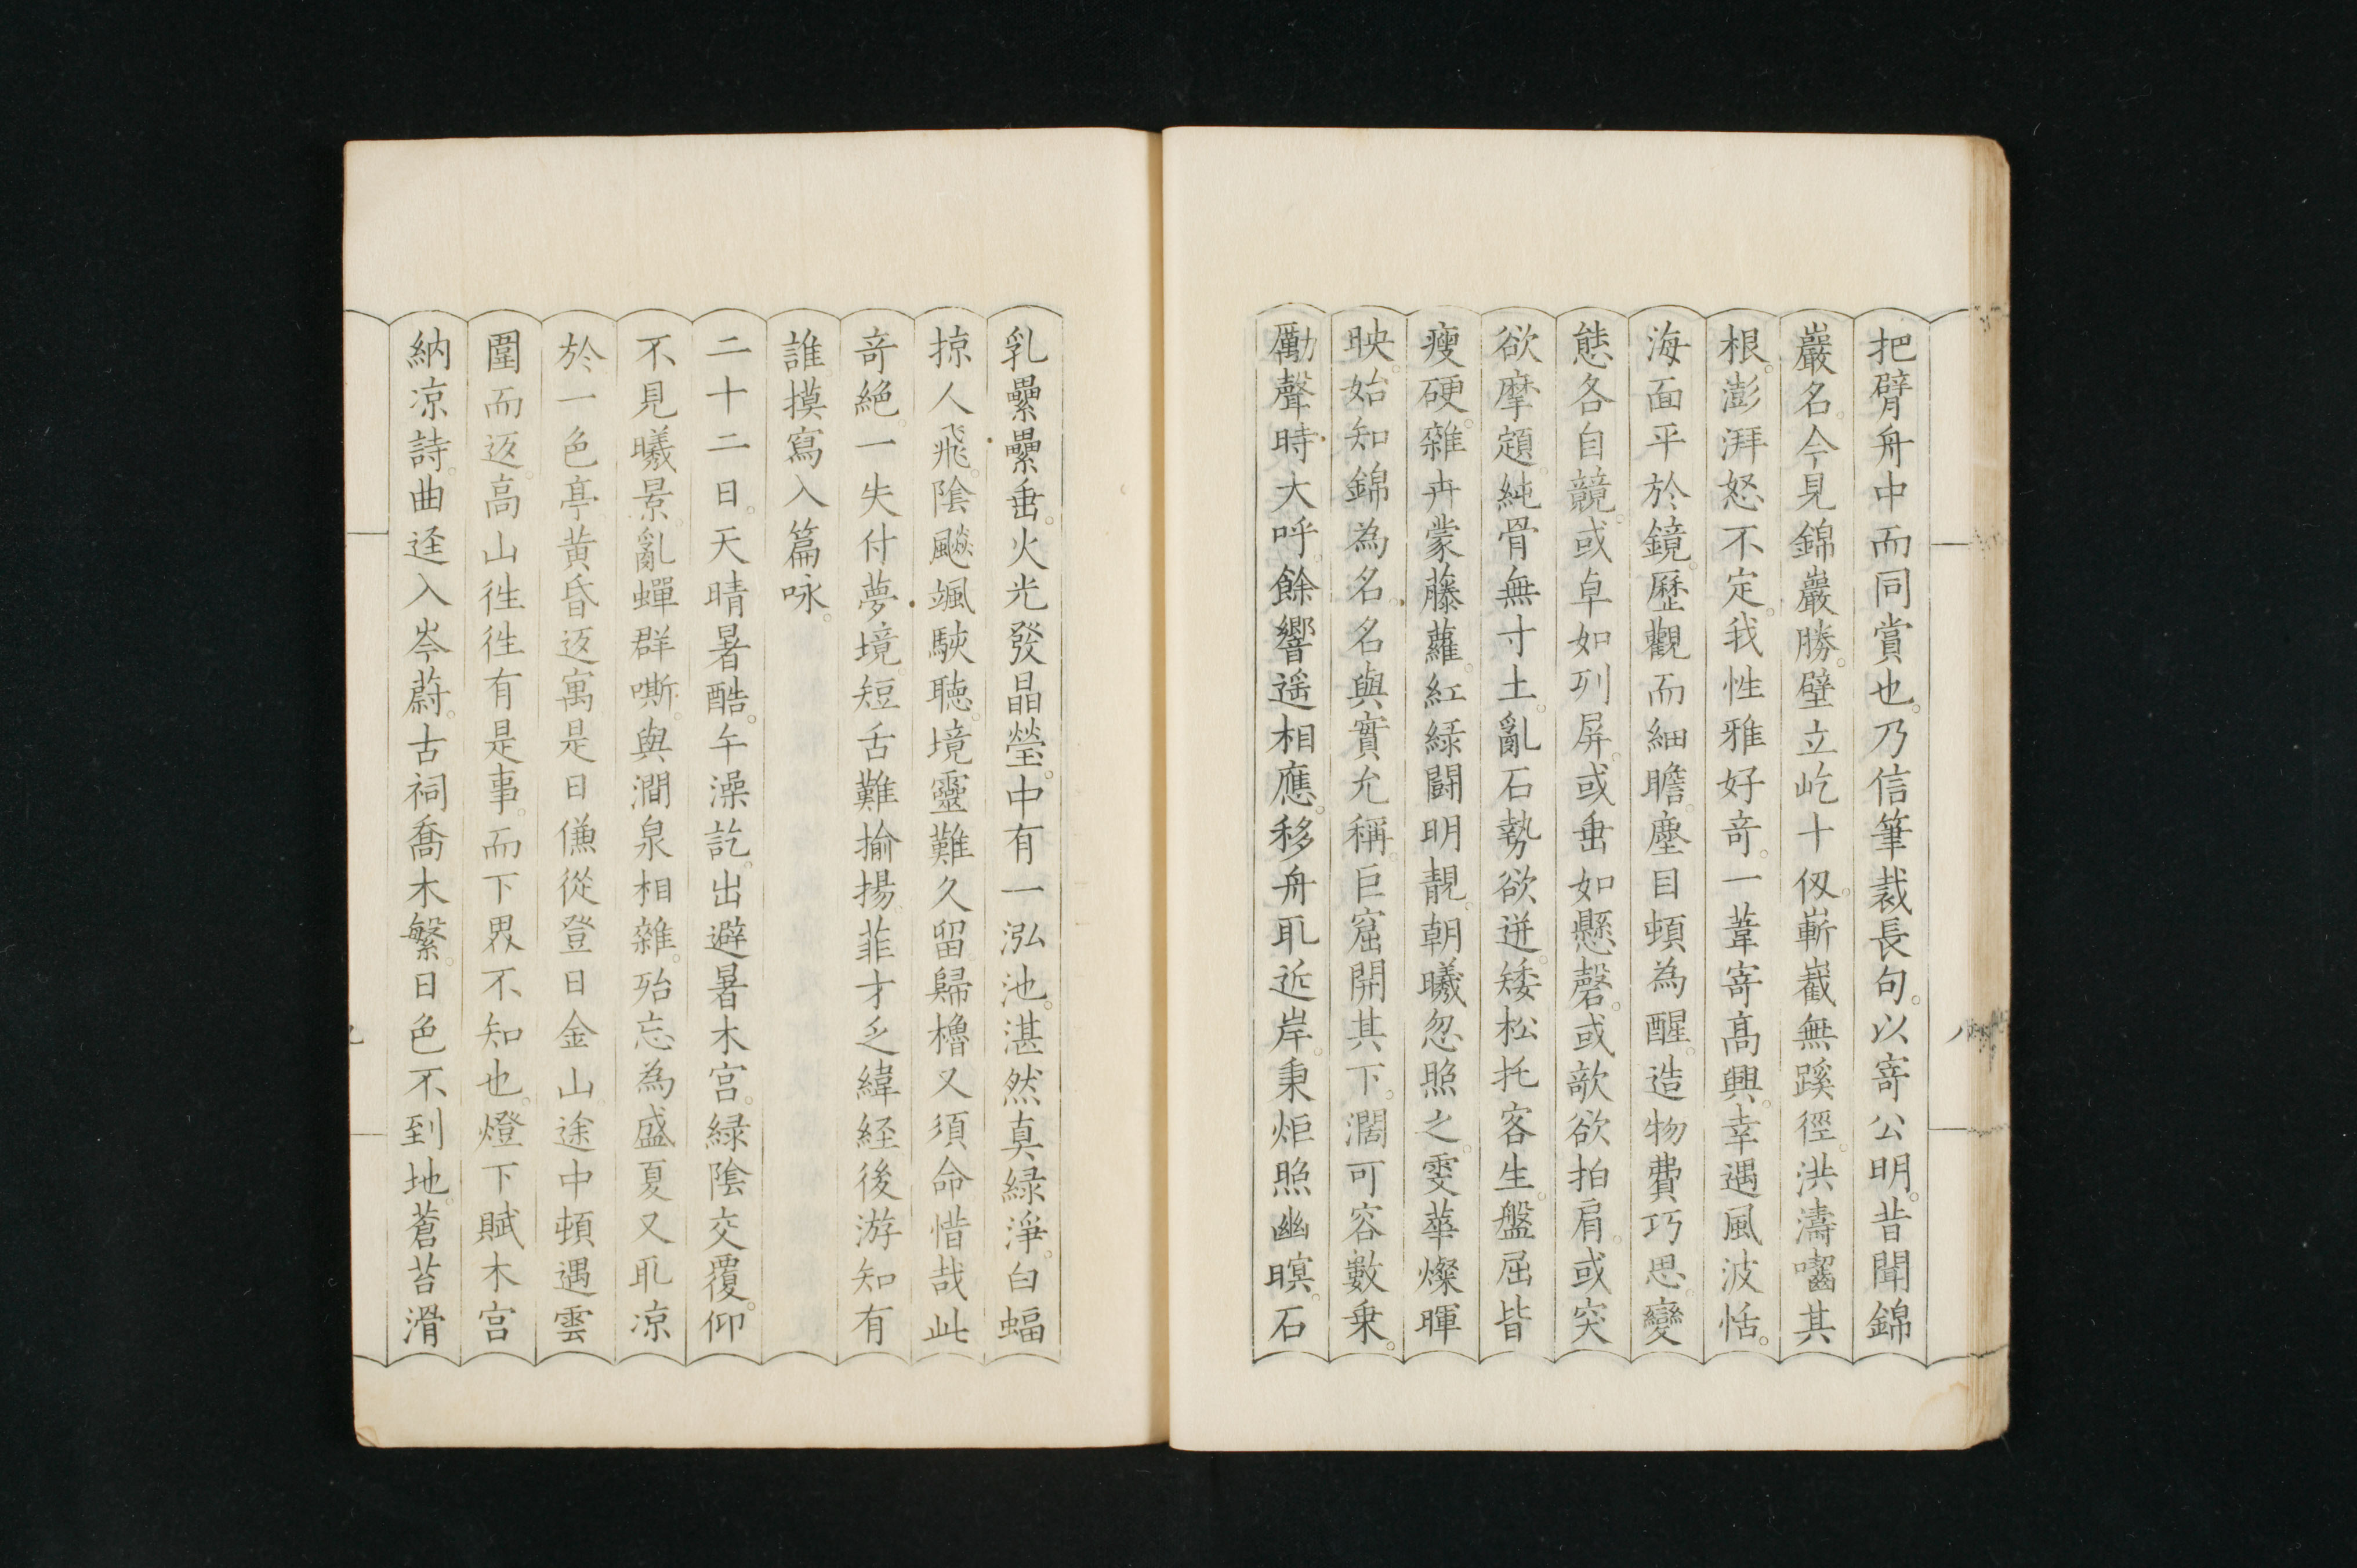 把臂舟中而同賞也。乃信筆裁長句。以寄公明。昔聞錦
巖名。今見錦巖勝。壁立屹十仭。嶄嶻無蹊徑。洪濤囓其
根。澎湃怒不定。我性雅好竒。一葦寄高興。幸遇風波恬。
海面平於鏡。歷觀而細瞻。塵目頓為醒。造物費巧思。變
態各自競。或卓如列屏。或垂如懸磬。或欹欲拍肩。或突
欲摩頂。純骨無寸土。亂石勢欲迸。矮松托客生。盤屈皆
瘦硬。雜卉蒙藤蘿。紅緑鬪明靚。朝曦忽照之。雯華燦暉
映。始知錦為名。名與實允稱。巨窟開其下。濶可容數乗。
勵聲時大呼。餘響遥相應。移舟耴近岸。秉炬照幽暝。石
乳纍纍垂。火光發晶瑩。中有一泓池。湛然真緑淨。白蝠
掠人飛。陰飈颯駛聴。境靈難久留。歸櫓又須命。惜哉此
竒絶。一失付夢境。短舌難揄揚。菲才乏緯経。後游知有
誰。摸寫入篇咏。
二十二日。天晴暑酷。午澡訖。出避暑木宮。緑陰交覆。仰
不見曦景。亂蟬群嘶。與澗泉相雜。殆忘為盛夏。又耴凉
於一色亭。黄昏返寓。是日傔從登日金山。途中頓遇雲
圍而返。高山往往有是事。而下界不知也。燈下賦木宮
納凉詩。曲逕入岑蔚。古祠喬木繁。日色不到地。蒼苔滑
八